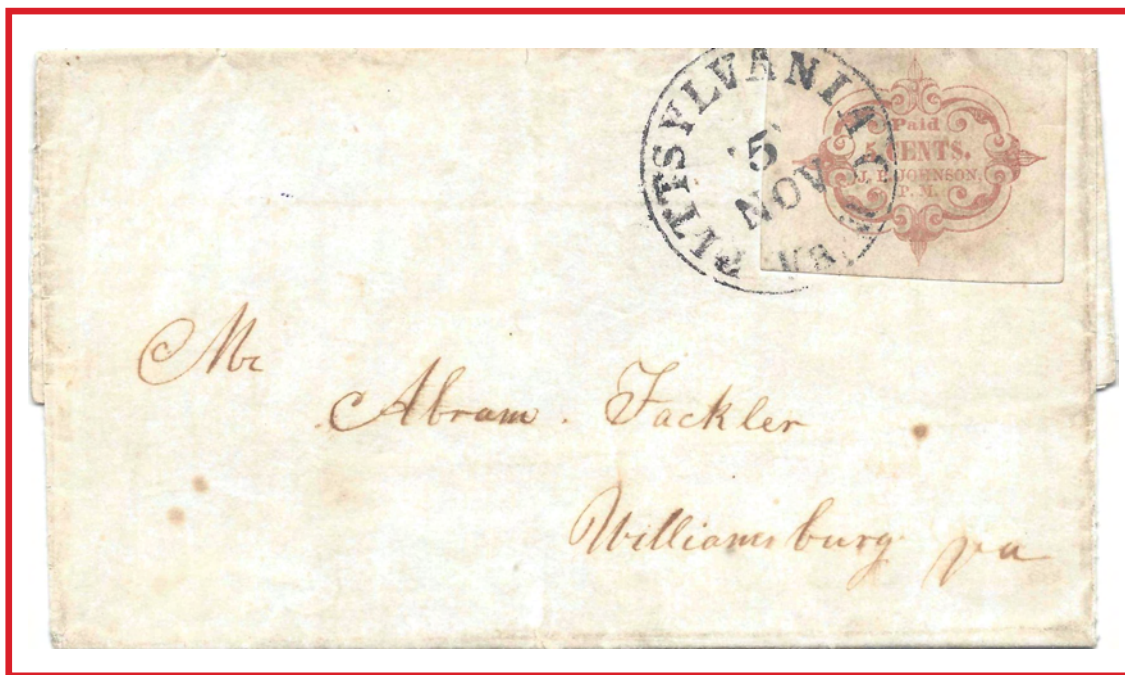 PITTSYLVANIA C.H. Va.
5
NOV
Paid
5 CENTS.
J. P. JOHNSON,
P. M.
Mr
Abram. Fackler
Williamsburg va